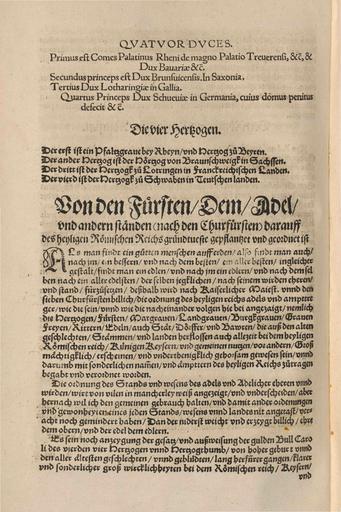 QVATVOR DVCES.
Primus est Comes Palatinus Rheni de magno Palatio Treuerensi, &c̃, &
Dux Bauariæ &c̃.
Secundus princeps est Dux Brunsuicensis. In Saxonia.
Tertius Dux Lotharingiæ in Gallia.
Quartus Princeps Dux Schueuiæ in Germania, cuius domus penitus
defecit &c̃.
Die vier Hertzogen.
Der erst ist ein Pfaltzgraue bey Rheyn/ vnd Hertzog zů Beyren.
Der ander Hertzog ist der Hörtzog von Braunschweigk in Sachssen.
Der drit ist der Hertzogk zů Lotringen in Franckreichischen Landen.
Der vierd ist der Hertzogk zů Schwaben in Teutschen landen.
Von den Fürsten/ Dem/ Adel/
vnd andern ständen (nach den Churfürsten) darauff
des heyligen Römischen Reichs gründueste gepflantzet vnd geordnet ist
Als man findet ein gůten menschen auffwerden/ also findt man auch/
nach jm/ ein bessern/ vnd nach dem besten/ ein aller besten/ inglei­cher
gestalt/ findt man ein edlen/ vnd nach jm ein edlern/ vnd nach dem sel
ben nach ein aller edlsten/ der selben jegklichen/ nach seinem wirden eheren/
vnd stand/ fürzůsetzen/ deßhalb wird nach Kaiserlicher Maiest. vnnd den
sieben Churfürsten billich/ die ordnung des heyligen reichs adels vnd ampteren
ger/ wie die sein/ vnd wie die nacheinander volgen hie bei angezeigt/ nemlich
die Hertzogen/ Fürsten/ Marggrauen/ Landgrauen/ Burgkgrauen/ Grauen
Freyen/ Rittern/ Edeln/ auch Stät/ Dörffer/ vnd Bawren/ die auß den alten
geschlechten/ Stämmen/ vnd landen herflossen auch allzeit bei dem heyligen
Römischen reich/ Künigen Keysern/ vnd gemeinen nutzung/ vor andern/ Groß
mächtigklich/ erschienen/ vnd vnderthenigklich gehorsam gewesen sein/ vnnd
darumb mit sonderlichen namen/ vnd ämpteren des heyligen Reichs zůtragen
begabt vnd verordnet worden.
Die ordnung des Stands vnd wesens des adels vnd Adelicher eheren vnnd
wirden/ wiert von vilen in mancherley weiß angezeigt/ vnd vnderscheiden/ aber
hernach wil ich den gemeinen gebrauch halten/ vnd damit andre ordenungen
vnd gewonheyten eines jeden Stands/ wesens vnnd landes nit angetast/ ver
acht noch gemindert haben/ Dan der niderst weicht vnd ergeyt billich/ ehre
dem obern/ vnd der edel dem edlern.
Es sein noch anzeygung der gesatz/ vnd außweisung der gulden Bull Caro
li des vierden vier Hertzogen vnnd Hertzogthumb/ von hohem gebornen vnd
den aller ältesten geschlechten/ vnnd geblüden/ lang herfürer gangen/ klarer
vnd sonderlicher groß wircklichheyten bei dem Römischen reich/ Keysern/
vnd